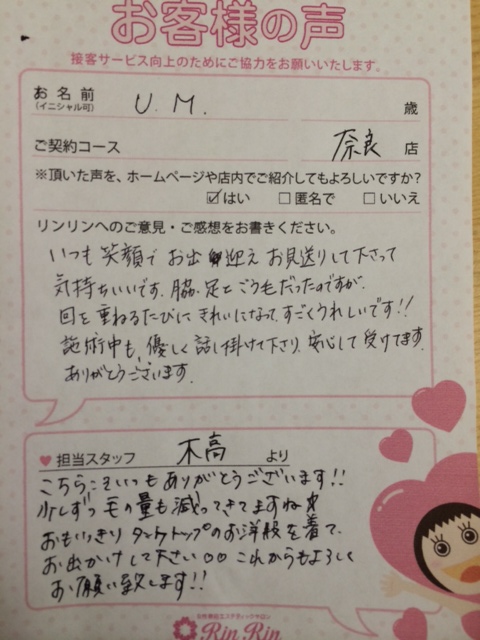 お客様の声
接客サービス向上のためにご協力をお願いいたします。
お名前 U.M. 歳
(イニシャル可)
ご契約コース 奈良 店
※頂いた声を、ホームページや店内でご紹介してもよろしいですか?
☑はい □匿名で □いいえ
リンリンへのご意見・ご感想をお書きください。
いつも笑顔でお出迎えお見送りして下さって
気持ちいいです。脇・足とごう毛だったのですが、
回を重ねるたびにきれいになって、すごくうれしいです!!
施術中も、優しく話し掛けて下さり、安心して受けてます。
ありがとうございます。
♥担当スタッフ 木高 より
こちらこそいつもありがとうございます!!
少しずつ毛の量も減ってきてますね
おもいっきりタンクトップのお洋服を着て、
お出かけして下さい♡♡これからもよろしく
お願い致します!!
女性専用エステティックサロン
Rin Rin